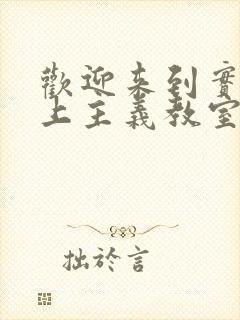 歡迎來到實
上主義教室
拙於言